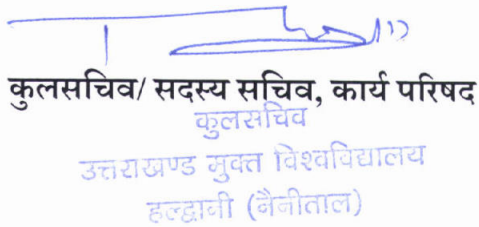 कुलसचिव/ सदस्य सचिव, कार्य परिषद
कुलसचिव
उत्तराखण्ड मुक्त विश्वविद्यालय
हल्द्वानी (नैनीताल)